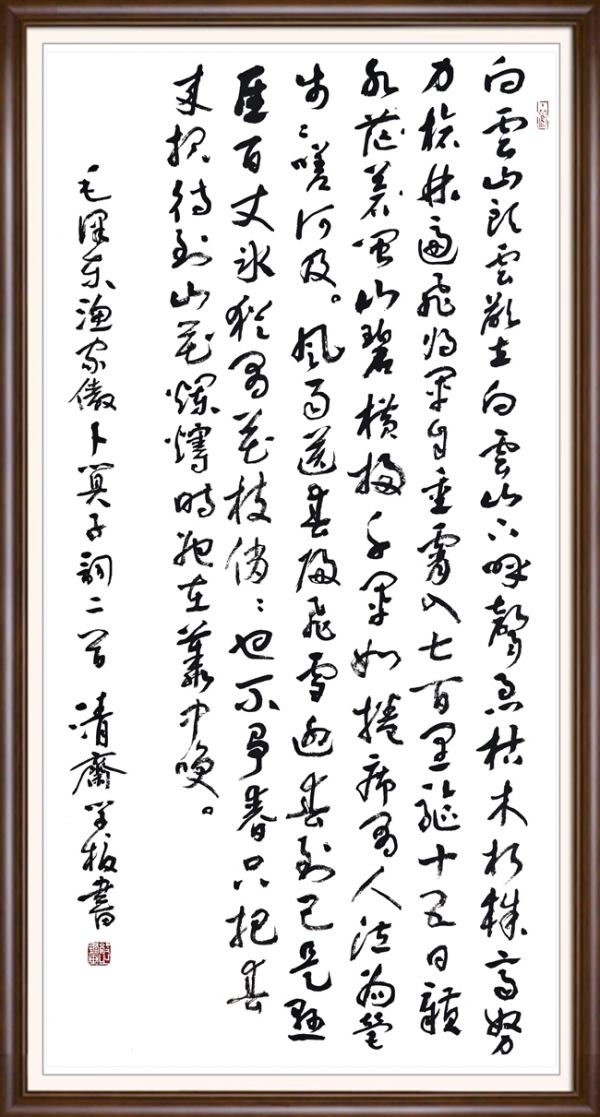 白雲山頭雲欲立白雲山下呼聲急枯木朽株齊努
力槍林逼飛將軍自重霄入七百里驅十五日贛
水蒼茫閩山碧橫掃千軍如捲席有人泣為營
步々嗟何及。風雨送春歸飛雪迎春到已是懸
崖百丈冰猶有花枝俏々也不爭春只把春
來報待到山花爛熳時她在叢中笑。
毛澤東漁家傲卜算子詞二首 清齋書